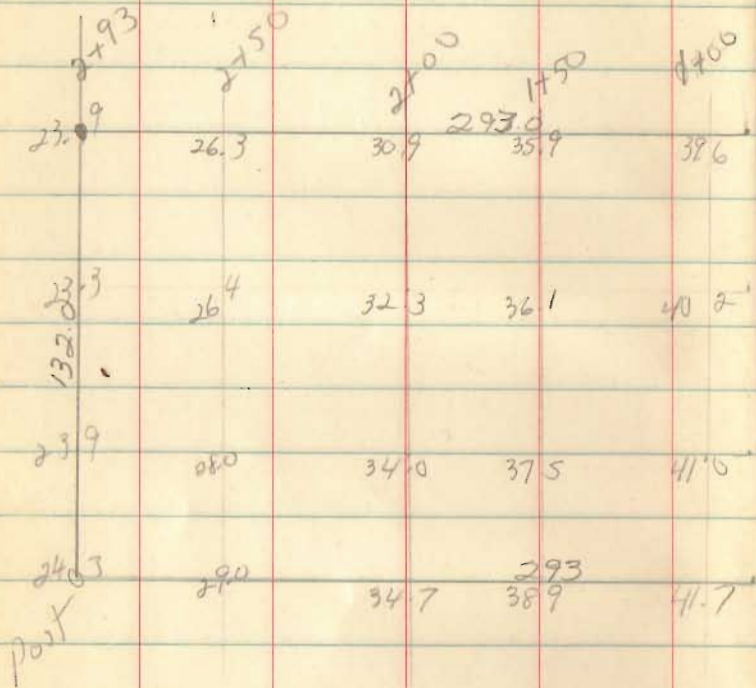 2+93 2+50 2+00 1+50 1+00
293.0
23.9 26.3 30.9 35.9 39.6
23.3 26.4 32.3 36.1 40.2
132.0
23.9 28.0 34.0 37.5 41.0
293
24.3 29.0 34.7 38.9 41.7
post